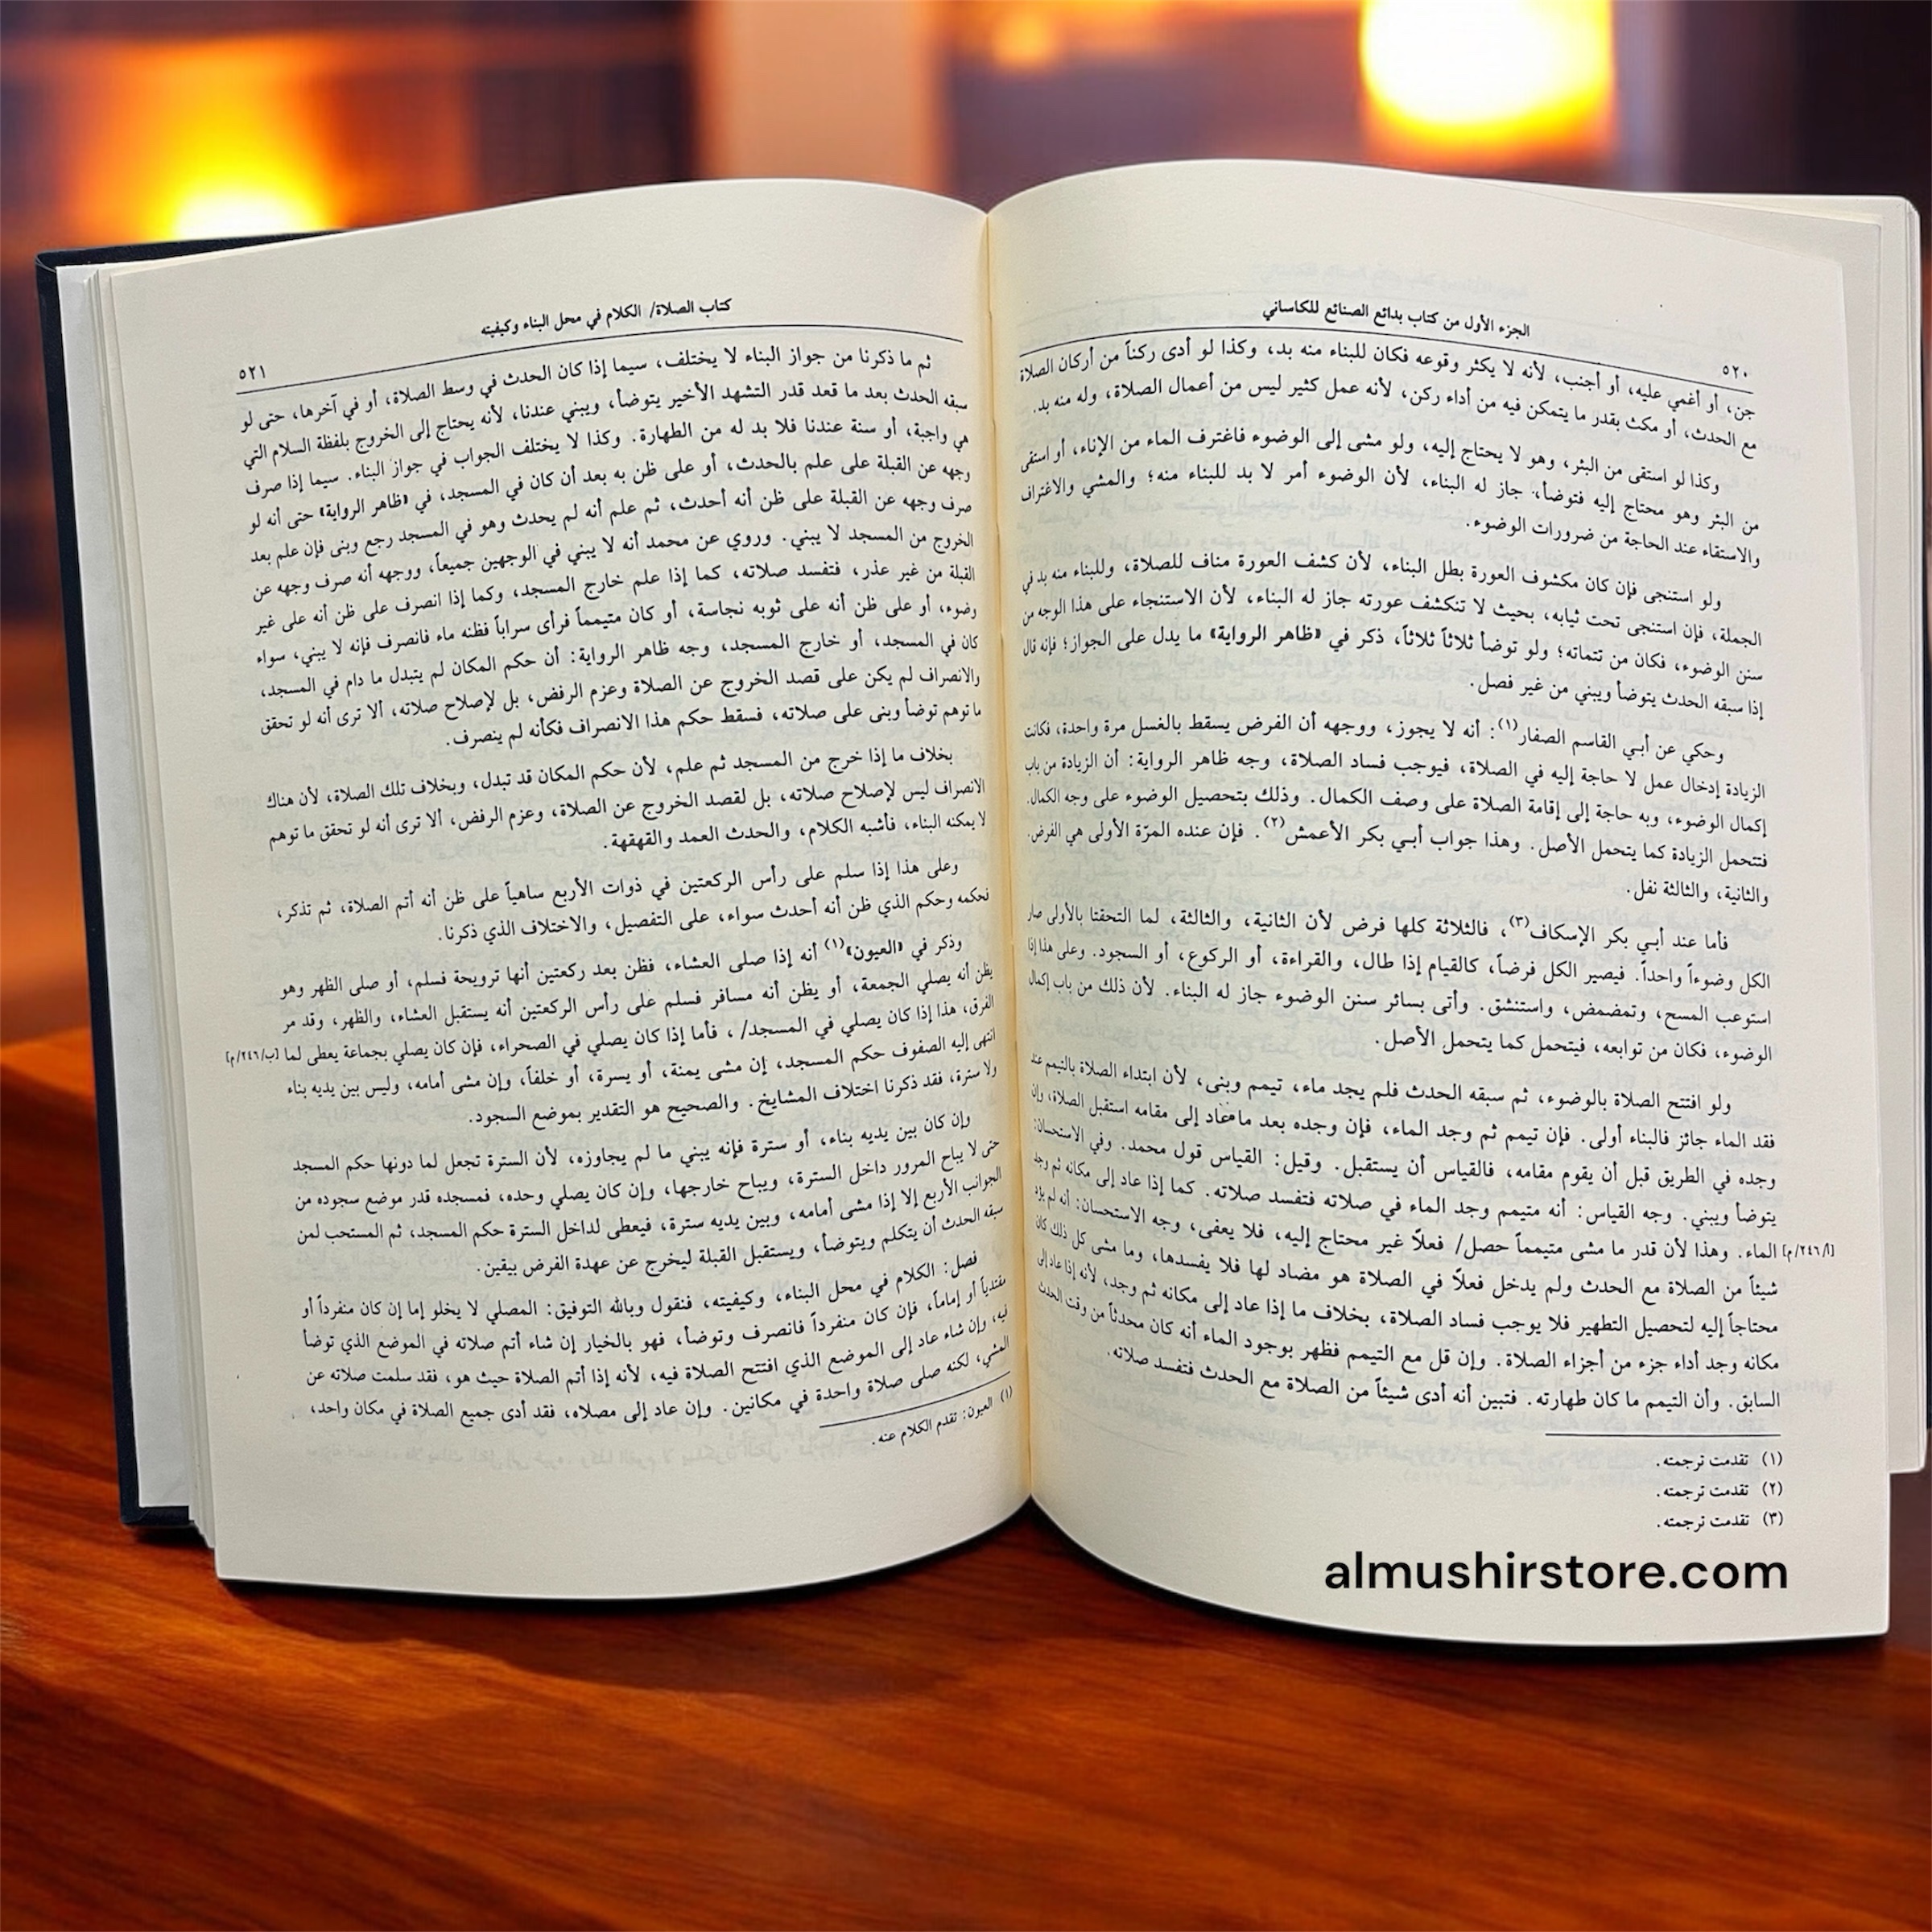 الجزء الأول من كتاب بدائع الصنائع للكاساني
٥٢٠
جن، أو أغمي عليه، أو أجنب، لأنه لا يكثر وقوعه فكان للبناء منه بد، وكذا لو أدى ركناً من أركان الصلاة
مع الحدث، أو مكث بقدر ما يتمكن فيه من أداء ركن، لأنه عمل كثير ليس من أعمال الصلاة، وله منه بد.
وكذا لو استقى من البئر، وهو لا يحتاج إليه، ولو مشى إلى الوضوء فاغترف الماء من الإناء، أو استقى
من البئر وهو محتاج إليه فتوضأ، جاز له البناء، لأن الوضوء أمر لا بد للبناء منه؛ والمشي والاغتراف
والاستقاء عند الحاجة من ضرورات الوضوء.
ولو استنجى فإن كان مكشوف العورة بطل البناء، لأن كشف العورة مناف للصلاة، وللبناء منه بد في
الجملة، فإن استنجى تحت ثيابه، بحيث لا تنكشف عورته جاز له البناء، لأن الاستنجاء على هذا الوجه من
سنن الوضوء، فكان من تتماته؛ ولو توضأ ثلاثاً ثلاثاً، ذكر في «ظاهر الرواية» ما يدل على الجواز؛ فإنه قال
إذا سبقه الحدث يتوضأ ويبني من غير فصل.
وحكي عن أبي القاسم الصفار(١): أنه لا يجوز، ووجهه أن الفرض يسقط بالغسل مرة واحدة، فكانت
الزيادة إدخال عمل لا حاجة إليه في الصلاة، فيوجب فساد الصلاة، وجه ظاهر الرواية: أن الزيادة من باب
إكمال الوضوء، وبه حاجة إلى إقامة الصلاة على وصف الكمال. وذلك بتحصيل الوضوء على وجه الكمال.
فتتحمل الزيادة كما يتحمل الأصل. وهذا جواب أبي بكر الأعمش(٢). فإن عنده المرّة الأولى هي الفرض.
والثانية، والثالثة نفل.
فأما عند أبي بكر الإسكاف(٣)، فالثلاثة كلها فرض لأن الثانية، والثالثة، لما التحقتا بالأولى صار
الكل وضوءاً واحداً. فيصير الكل فرضاً، كالقيام إذا طال، والقراءة، أو الركوع، أو السجود. وعلى هذا إذا
استوعب المسح، وتمضمض، واستنشق. وأتى بسائر سنن الوضوء جاز له البناء. لأن ذلك من باب إكمال
الوضوء، فكان من توابعه، فيتحمل كما يتحمل الأصل.
ولو افتتح الصلاة بالوضوء، ثم سبقه الحدث فلم يجد ماء، تيمم وبنى، لأن ابتداء الصلاة بالتيمم عند
فقد الماء جائز فالبناء أولى. فإن تيمم ثم وجد الماء، فإن وجده بعد ما عاد إلى مقامه استقبل الصلاة، وإن
وجده في الطريق قبل أن يقوم مقامه، فالقياس أن يستقبل. وقيل: القياس قول محمد. وفي الاستحسان:
يتوضأ ويبني. وجه القياس: أنه متيمم وجد الماء في صلاته فتفسد صلاته. كما إذا عاد إلى مكانه ثم وجد
[أ/٢٤٦/م] الماء. وهذا لأن قدر ما مشى متيمماً حصل/ فعلاً غير محتاج إليه، فلا يعفى، وجه الاستحسان: أنه لم يؤد
شيئاً من الصلاة مع الحدث ولم يدخل فعلاً في الصلاة هو مضاد لها فلا يفسدها، وما مشى كل ذلك كان
محتاجاً إليه لتحصيل التطهير فلا يوجب فساد الصلاة، بخلاف ما إذا عاد إلى مكانه ثم وجد، لأنه إذا عاد إلى
مكانه وجد أداء جزء من أجزاء الصلاة. وإن قل مع التيمم فظهر بوجود الماء أنه كان محدثاً من وقت الحدث
السابق. وأن التيمم ما كان طهارته. فتبين أنه أدى شيئاً من الصلاة مع الحدث فتفسد صلاته.
(١) تقدمت ترجمته.
(٢) تقدمت ترجمته.
(٣) تقدمت ترجمته.
almushirstore.com
كتاب الصلاة/ الكلام في محل البناء وكيفيته
٥٢١
ثم ما ذكرنا من جواز البناء لا يختلف، سيما إذا كان الحدث في وسط الصلاة، أو في آخرها، حتى لو
سبقه الحدث بعد ما قعد قدر التشهد الأخير يتوضأ، ويبني عندنا، لأنه يحتاج إلى الخروج بلفظة السلام التي
هي واجبة، أو سنة عندنا فلا بد له من الطهارة. وكذا لا يختلف الجواب في جواز البناء. سيما إذا صرف
وجهه عن القبلة على علم بالحدث، أو على ظن به بعد أن كان في المسجد، في «ظاهر الرواية» حتى أنه لو
صرف وجهه عن القبلة على ظن أنه أحدث، ثم علم أنه لم يحدث وهو في المسجد رجع وبنى فإن علم بعد
الخروج من المسجد لا يبني. وروي عن محمد أنه لا يبني في الوجهين جميعاً، ووجهه أنه صرف وجهه عن
القبلة من غير عذر، فتفسد صلاته، كما إذا علم خارج المسجد، وكما إذا انصرف على ظن أنه على غير
وضوء، أو على ظن أنه على ثوبه نجاسة، أو كان متيمماً فرأى سراباً فظنه ماء فانصرف فإنه لا يبني، سواء
كان في المسجد، أو خارج المسجد، وجه ظاهر الرواية: أن حكم المكان لم يتبدل ما دام في المسجد،
والانصراف لم يكن على قصد الخروج عن الصلاة وعزم الرفض، بل لإصلاح صلاته، ألا ترى أنه لو تحقق
ما توهم توضأ وبنى على صلاته، فسقط حكم هذا الانصراف فكأنه لم ينصرف.
بخلاف ما إذا خرج من المسجد ثم علم، لأن حكم المكان قد تبدل، وبخلاف تلك الصلاة، لأن هناك
الانصراف ليس لإصلاح صلاته، بل لقصد الخروج عن الصلاة، وعزم الرفض، ألا ترى أنه لو تحقق ما توهم
لا يمكنه البناء، فأشبه الكلام، والحدث العمد والقهقهة.
وعلى هذا إذا سلم على رأس الركعتين في ذوات الأربع ساهياً على ظن أنه أتم الصلاة، ثم تذكر،
فحكمه وحكم الذي ظن أنه أحدث سواء، على التفصيل، والاختلاف الذي ذكرنا.
وذكر في «العيون»(١) أنه إذا صلى العشاء، فظن بعد ركعتين أنها ترويحة فسلم، أو صلى الظهر وهو
يظن أنه يصلي الجمعة، أو يظن أنه مسافر فسلم على رأس الركعتين أنه يستقبل العشاء، والظهر، وقد مر
الفرق، هذا إذا كان يصلي في المسجد/، فأما إذا كان يصلي في الصحراء، فإن كان يصلي بجماعة يعطى لما [ب/٢٤٦/م]
انتهى إليه الصفوف حكم المسجد، إن مشى يمنة، أو يسرة، أو خلفاً، وإن مشى أمامه، وليس بين يديه بناء
ولا سترة، فقد ذكرنا اختلاف المشايخ. والصحيح هو التقدير بموضع السجود.
وإن كان بين يديه بناء، أو سترة فإنه يبني ما لم يجاوزه، لأن السترة تجعل لما دونها حكم المسجد
حتى لا يباح المرور داخل السترة، ويباح خارجها، وإن كان يصلي وحده، فمسجده قدر موضع سجوده من
الجوانب الأربع إلا إذا مشى أمامه، وبين يديه سترة، فيعطى لداخل السترة حكم المسجد، ثم المستحب لمن
سبقه الحدث أن يتكلم ويتوضأ، ويستقبل القبلة ليخرج عن عهدة الفرض بيقين.
فصل: الكلام في محل البناء، وكيفيته، فنقول وبالله التوفيق: المصلي لا يخلو إما إن كان منفرداً أو
مقتدياً أو إماماً، فإن كان منفرداً فانصرف وتوضأ، فهو بالخيار إن شاء أتم صلاته في الموضع الذي توضأ
فيه، وإن شاء عاد إلى الموضع الذي افتتح الصلاة فيه، لأنه إذا أتم الصلاة حيث هو، فقد سلمت صلاته عن
المشي، لكنه صلى صلاة واحدة في مكانين. وإن عاد إلى مصلاه، فقد أدى جميع الصلاة في مكان واحد،
(١) العيون: تقدم الكلام عنه.